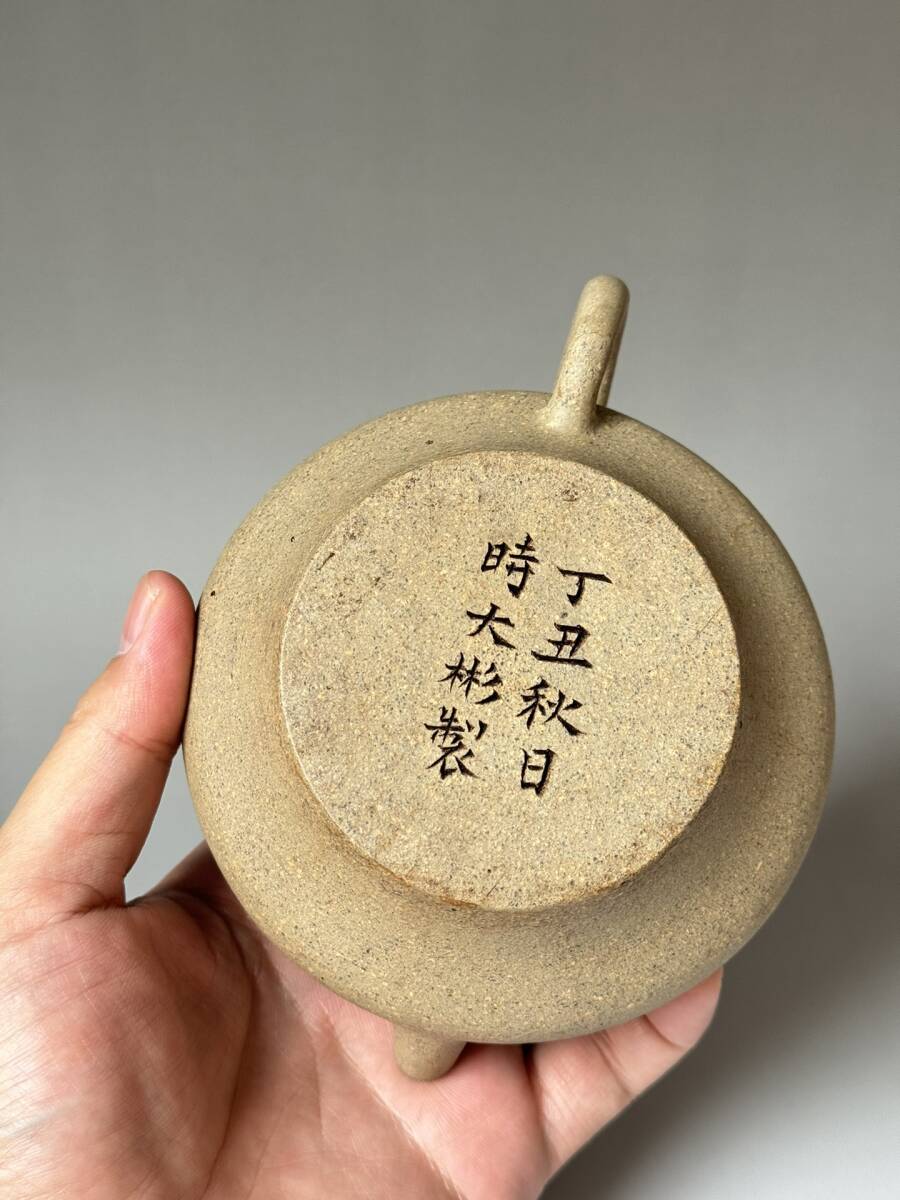 丁丑秋日
時大彬製